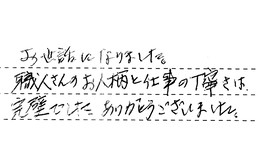 お世話になりました。
職人さんのお人柄と仕事の丁寧さは、
完璧でした。ありがとうございました。